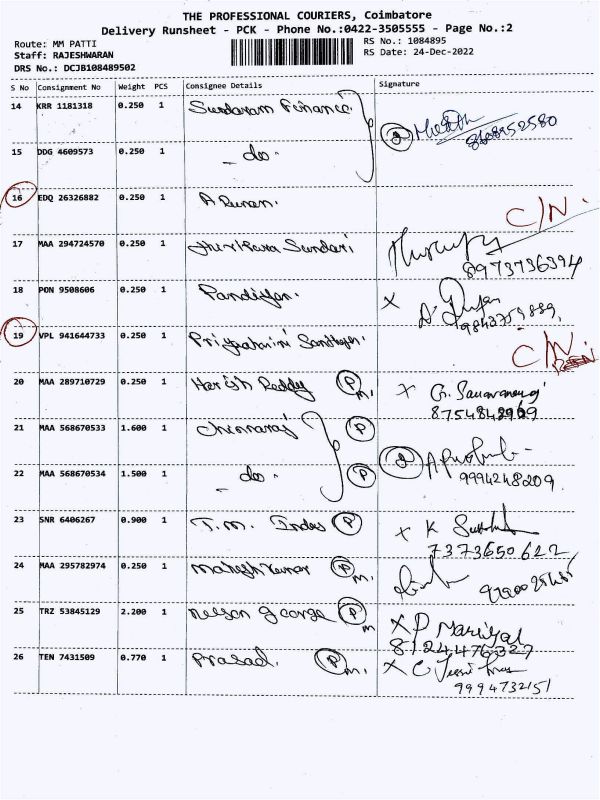 THE PROFESSIONAL COURIERS, Coimbatore
Delivery Runsheet - PCK - Phone No.:0422-3505555 - Page No.:2
Route: MM PATTI
RS No.: 1084895
Staff: RAJESHWARAN
RS Date: 24-Dec-2022
DRS No.: DCJB108489502
S No Consignment No Weight PCS Consignee Details Signature
14 KRR 1181318 0.250 1 Sundaram Finance 2
15 DDG 4609573 0.250 1 - do -
16 EDQ 26326882 0.250 1 C/N.
17 MAA 294724570 0.250 1 Sundari
8973736394
18 PON 9508606 0.250 1 Pandiyan. X
19 VPL 941644733 0.250 1 C/N
20 MAA 289710729 0.250 1 Harish Reddy P M. X G. Saravanan
21 MAA 568670533 1.600 1 Chinnaraj P
22 MAA 568670534 1.500 1 - do - P 2
9994248209
23 SNR 6406267 0.900 1 T.M. P X K
7373650622
24 MAA 295782974 0.250 1 Mahesh Kumar P M.
25 TRZ 53845129 2.200 1 Nelson George P M X P Mariyal
8124476327
26 TEN 7431509 0.770 1 Prasad. P M. X C
9994732151